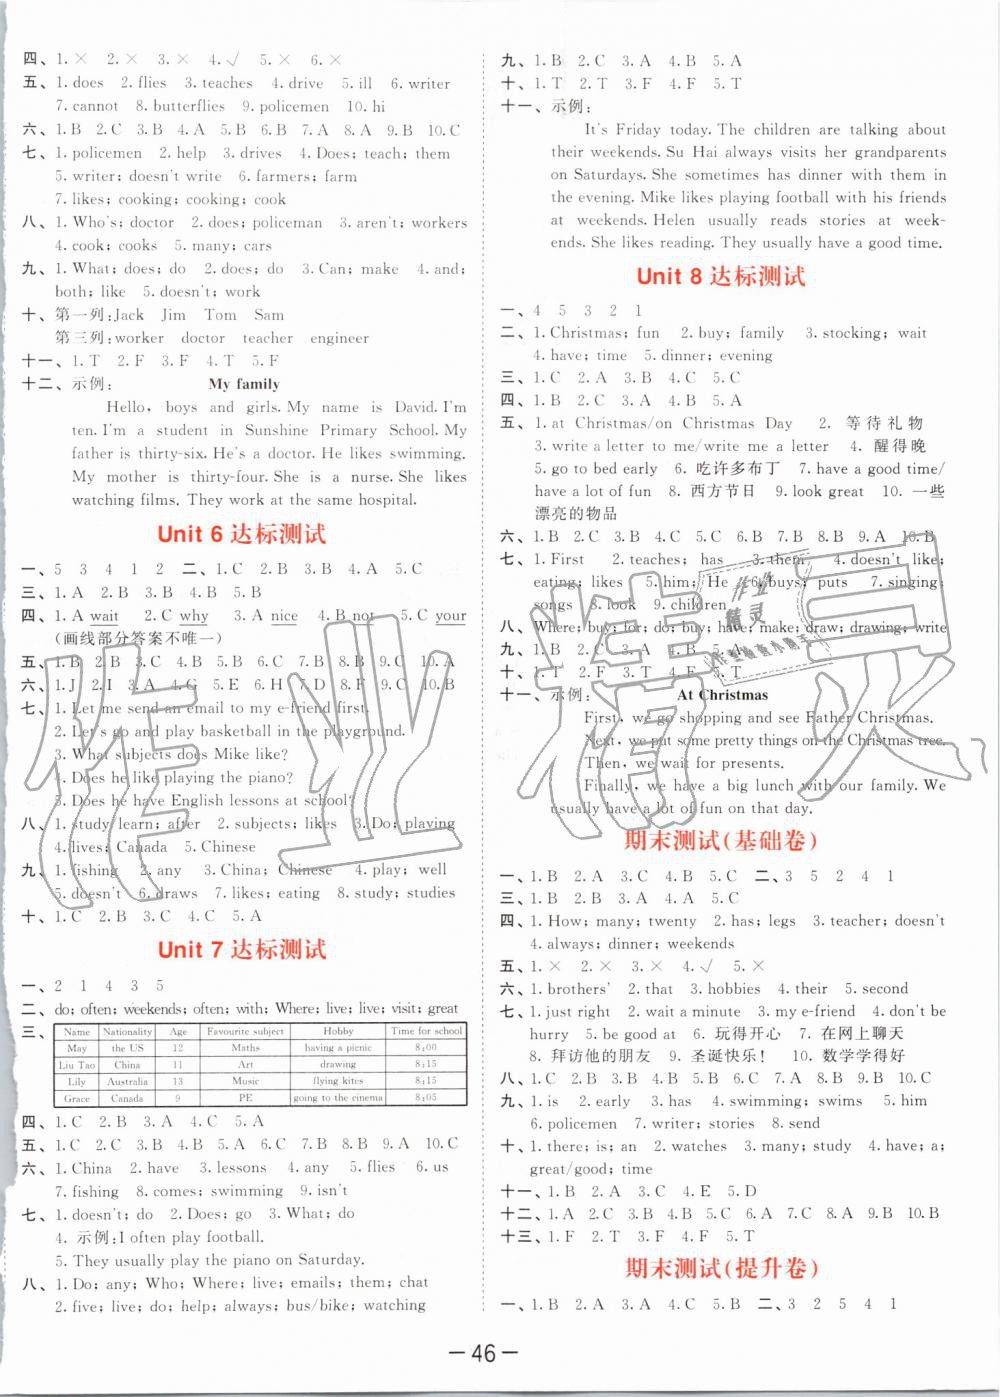 四、1.× 2.× 3.× 4.√ 5.× 6.×
五、1. does 2. flies 3. teaches 4. drive 5. ill 6. writer
7. cannot 8. butterflies 9. policemen 10. hi
六、1. B 2. C 3. B 4. A 5. B 6. B 7. A 8. A 9. B 10. C
七、1. policemen 2. help 3. drives 4. Does; teach; them
5. writer; doesn't write 6. farmers; farm
7. likes; cooking; cooking; cook
八、1. Who's; doctor 2. does; policeman 3. aren't; workers
4. cook; cooks 5. many; cars
九、1. What; does; do 2. does; do 3. Can; make 4. and;
both; like 5. doesn't; work
十、第一列:Jack Jim Tom Sam
第三列:worker doctor teacher engineer
十一、1. T 2. F 3. F 4. T 5. F
十二、示例: My family
Hello, boys and girls. My name is David. I'm
ten. I'm a student in Sunshine Primary School. My
father is thirty-six. He's a doctor. He likes swimming.
My mother is thirty-four. She is a nurse. She likes
watching films. They work at the same hospital.
Unit 6 达标测试
一、5 3 4 1 2 二、1. C 2. B 3. B 4. A 5. C
三、1. A 2. B 3. B 4. B 5. B
四、1. A wait 2. C why 3. A nice 4. B not 5. C your
(画线部分答案不唯一)
五、1. B 2. B 3. B 4. A 5. B 6. A 7. B 8. B 9. C 10. A
六、1. J 2. I 3. A 4. G 5. E 6. H 7. D 8. F 9. C 10. B
七、1. Let me send an email to my e-friend first.
2. Let's go and play basketball in the playground.
3. What subjects does Mike like?
4. Does he like playing the piano?
5. Does he have English lessons at school?
八、1. study/learn; after 2. subjects; likes 3. Do; playing
4. lives; Canada 5. Chinese
九、1. fishing 2. any 3. China; Chinese 4. play; well
5. doesn't 6. draws 7. likes; eating 8. study; studies
十、1. C 2. B 3. C 4. C 5. A
Unit 7 达标测试
一、2 1 4 3 5
二、do; often; weekends; often; with; Where; live; live; visit; great
三、Name Nationality Age Favourite subject Hobby Time for school
May the US 12 Maths having a picnic 8:00
Liu Tao China 11 Art drawing 8:15
Lily Australia 13 Music flying kites 8:15
Grace Canada 9 PE going to the cinema 8:05
四、1. C 2. B 3. A 4. C 5. A
五、1. C 2. C 3. B 4. B 5. A 6. C 7. B 8. B 9. A 10. C
六、1. China 2. have 3. lessons 4. any 5. flies 6. us
7. fishing 8. comes; swimming 9. isn't
七、1. doesn't; do 2. Does; go 3. What; do
4. 示例:I often play football.
5. They usually play the piano on Saturday.
八、1. Do; any; Who; Where; live; emails; them; chat
2. five; live; do; help; always; bus/bike; watching
九、1. B 2. C 3. A 4. B 5. A
十、1. T 2. T 3. F 4. F 5. T
十一、示例:
It's Friday today. The children are talking about
their weekends. Su Hai always visits her grandparents
on Saturdays. She sometimes has dinner with them in
the evening. Mike likes playing football with his friends
at weekends. Helen usually reads stories at week-
ends. She likes reading. They usually have a good time.
Unit 8 达标测试
一、4 5 3 2 1
二、1. Christmas; fun 2. buy; family 3. stocking; wait
4. have; time 5. dinner; evening
三、1. C 2. A 3. B 4. C 5. C
四、1. B 2. C 3. A 4. B 5. A
五、1. at Christmas/on Christmas Day 2. 等待礼物
3. write a letter to me/write me a letter 4. 醒得晚
5. go to bed early 6. 吃许多布丁 7. have a good time/
have a lot of fun 8. 西方节日 9. look great 10. 一些
漂亮的物品
六、1. B 2. C 3. B 4. C 5. A 6. C 7. B 8. B 9. A 10. B
七、1. First 2. teaches; has 3. them 4. doesn't like;
eating; likes 5. him; He 6. buys; puts 7. singing;
songs 8. look 9. children
八、Where; buy; for; do; buy; have; make; draw; drawing; write
九、1. B 2. C 3. A 4. B 5. A
十、1. T 2. F 3. T 4. F 5. T
十一、示例: At Christmas
First, we go shopping and see Father Christmas.
Next, we put some pretty things on the Christmas tree.
Then, we wait for presents.
Finally, we have a big lunch with our family. We
usually have a lot of fun on that day.
期末测试(基础卷)
一、1. B 2. A 3. C 4. B 5. C 二、3 5 2 4 1
三、1. B 2. C 3. B 4. A 5. C
四、1. How; many; twenty 2. has; legs 3. teacher; doesn't
4. always; dinner; weekends
五、1.× 2.× 3.× 4.√ 5.×
六、1. brothers' 2. that 3. hobbies 4. their 5. second
七、1. just right 2. wait a minute 3. my e-friend 4. don't be
hurry 5. be good at 6. 玩得开心 7. 在网上聊天
8. 拜访他的朋友 9. 圣诞快乐! 10. 数学学得好
八、1. C 2. B 3. C 4. C 5. B 6. A 7. B 8. A 9. B 10. C
九、1. is 2. early 3. has 4. swimming; swims 5. him
6. policemen 7. writer; stories 8. send
十、1. there; is; an 2. watches 3. many; study 4. have; a;
great/good; time
十一、1. B 2. A 3. C 4. E 5. D
十二、1. A 2. C 3. B 4. C 5. B 6. C 7. B 8. A 9. B 10. B
十三、1. F 2. T 3. F 4. F 5. T
期末测试(提升卷)
一、1. B 2. A 3. A 4. C 5. B 二、3 2 5 4 1
— 46 —